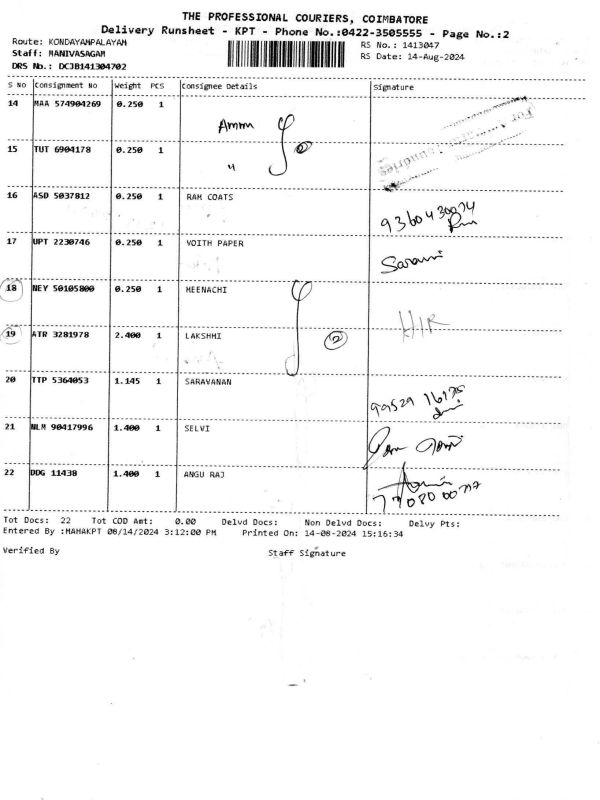 THE PROFESSIONAL COURIERS, COIMBATORE
Delivery Runsheet - KPT - Phone No.:0422-3505555 - Page No.:2
Route: KONDAYAMPALAYAM
Staff: MANIVASAGAM
DRS No.: DCJB141304702
RS No.: 1413047
RS Date: 14-Aug-2024
S No Consignment No Weight PCS Consignee Details Signature
14 MAA 574904269 0.250 1
Ammu
15 TUT 6904178 0.250 1
" 2
For Foundries
16 ASD 5037812 0.250 1 RAM COATS
17 UPT 2230746 0.250 1 VOITH PAPER
Saravi
18 NEY 50105800 0.250 1 MEENACHI
H/R
19 ATR 3281978 2.400 1 LAKSHMI
2
20 TTP 5364053 1.145 1 SARAVANAN
99529 16175
21 NLM 90417996 1.400 1 SELVI
22 DDG 11438 1.400 1 ANGU RAJ
Tot Docs: 22 Tot COD Amt: 0.00 Delvd Docs: Non Delvd Docs: Delvy Pts:
Entered By :MAHAKPT 08/14/2024 3:12:00 PM Printed On: 14-08-2024 15:16:34
Verified By Staff Signature